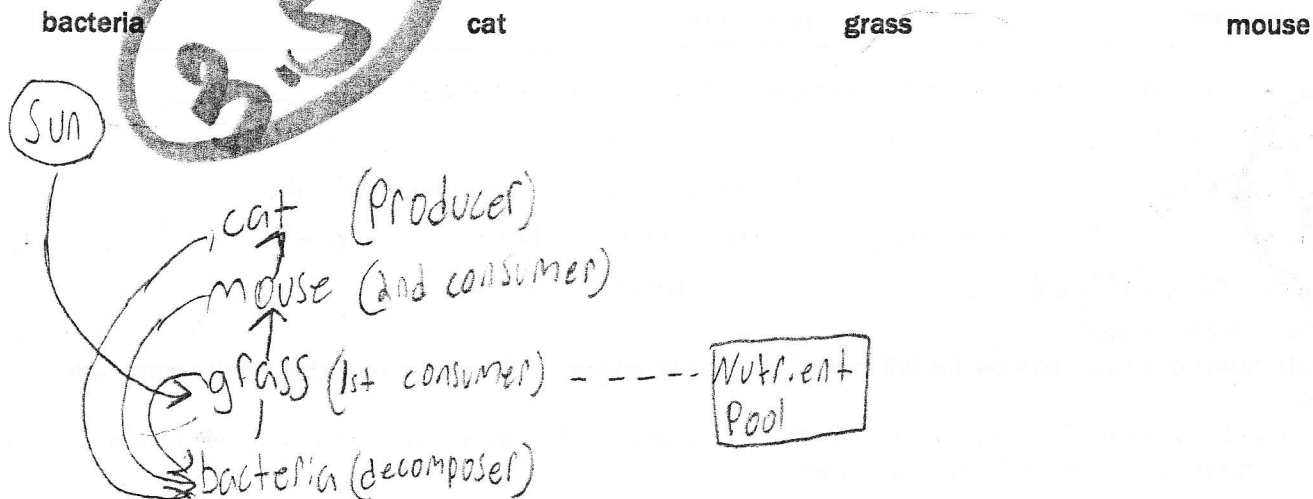 bacteria cat grass mouse
3.5
Sun
cat (Producer)
mouse (2nd consumer)
grass (1st consumer)
Nutrient
Pool
bacteria (decomposer)